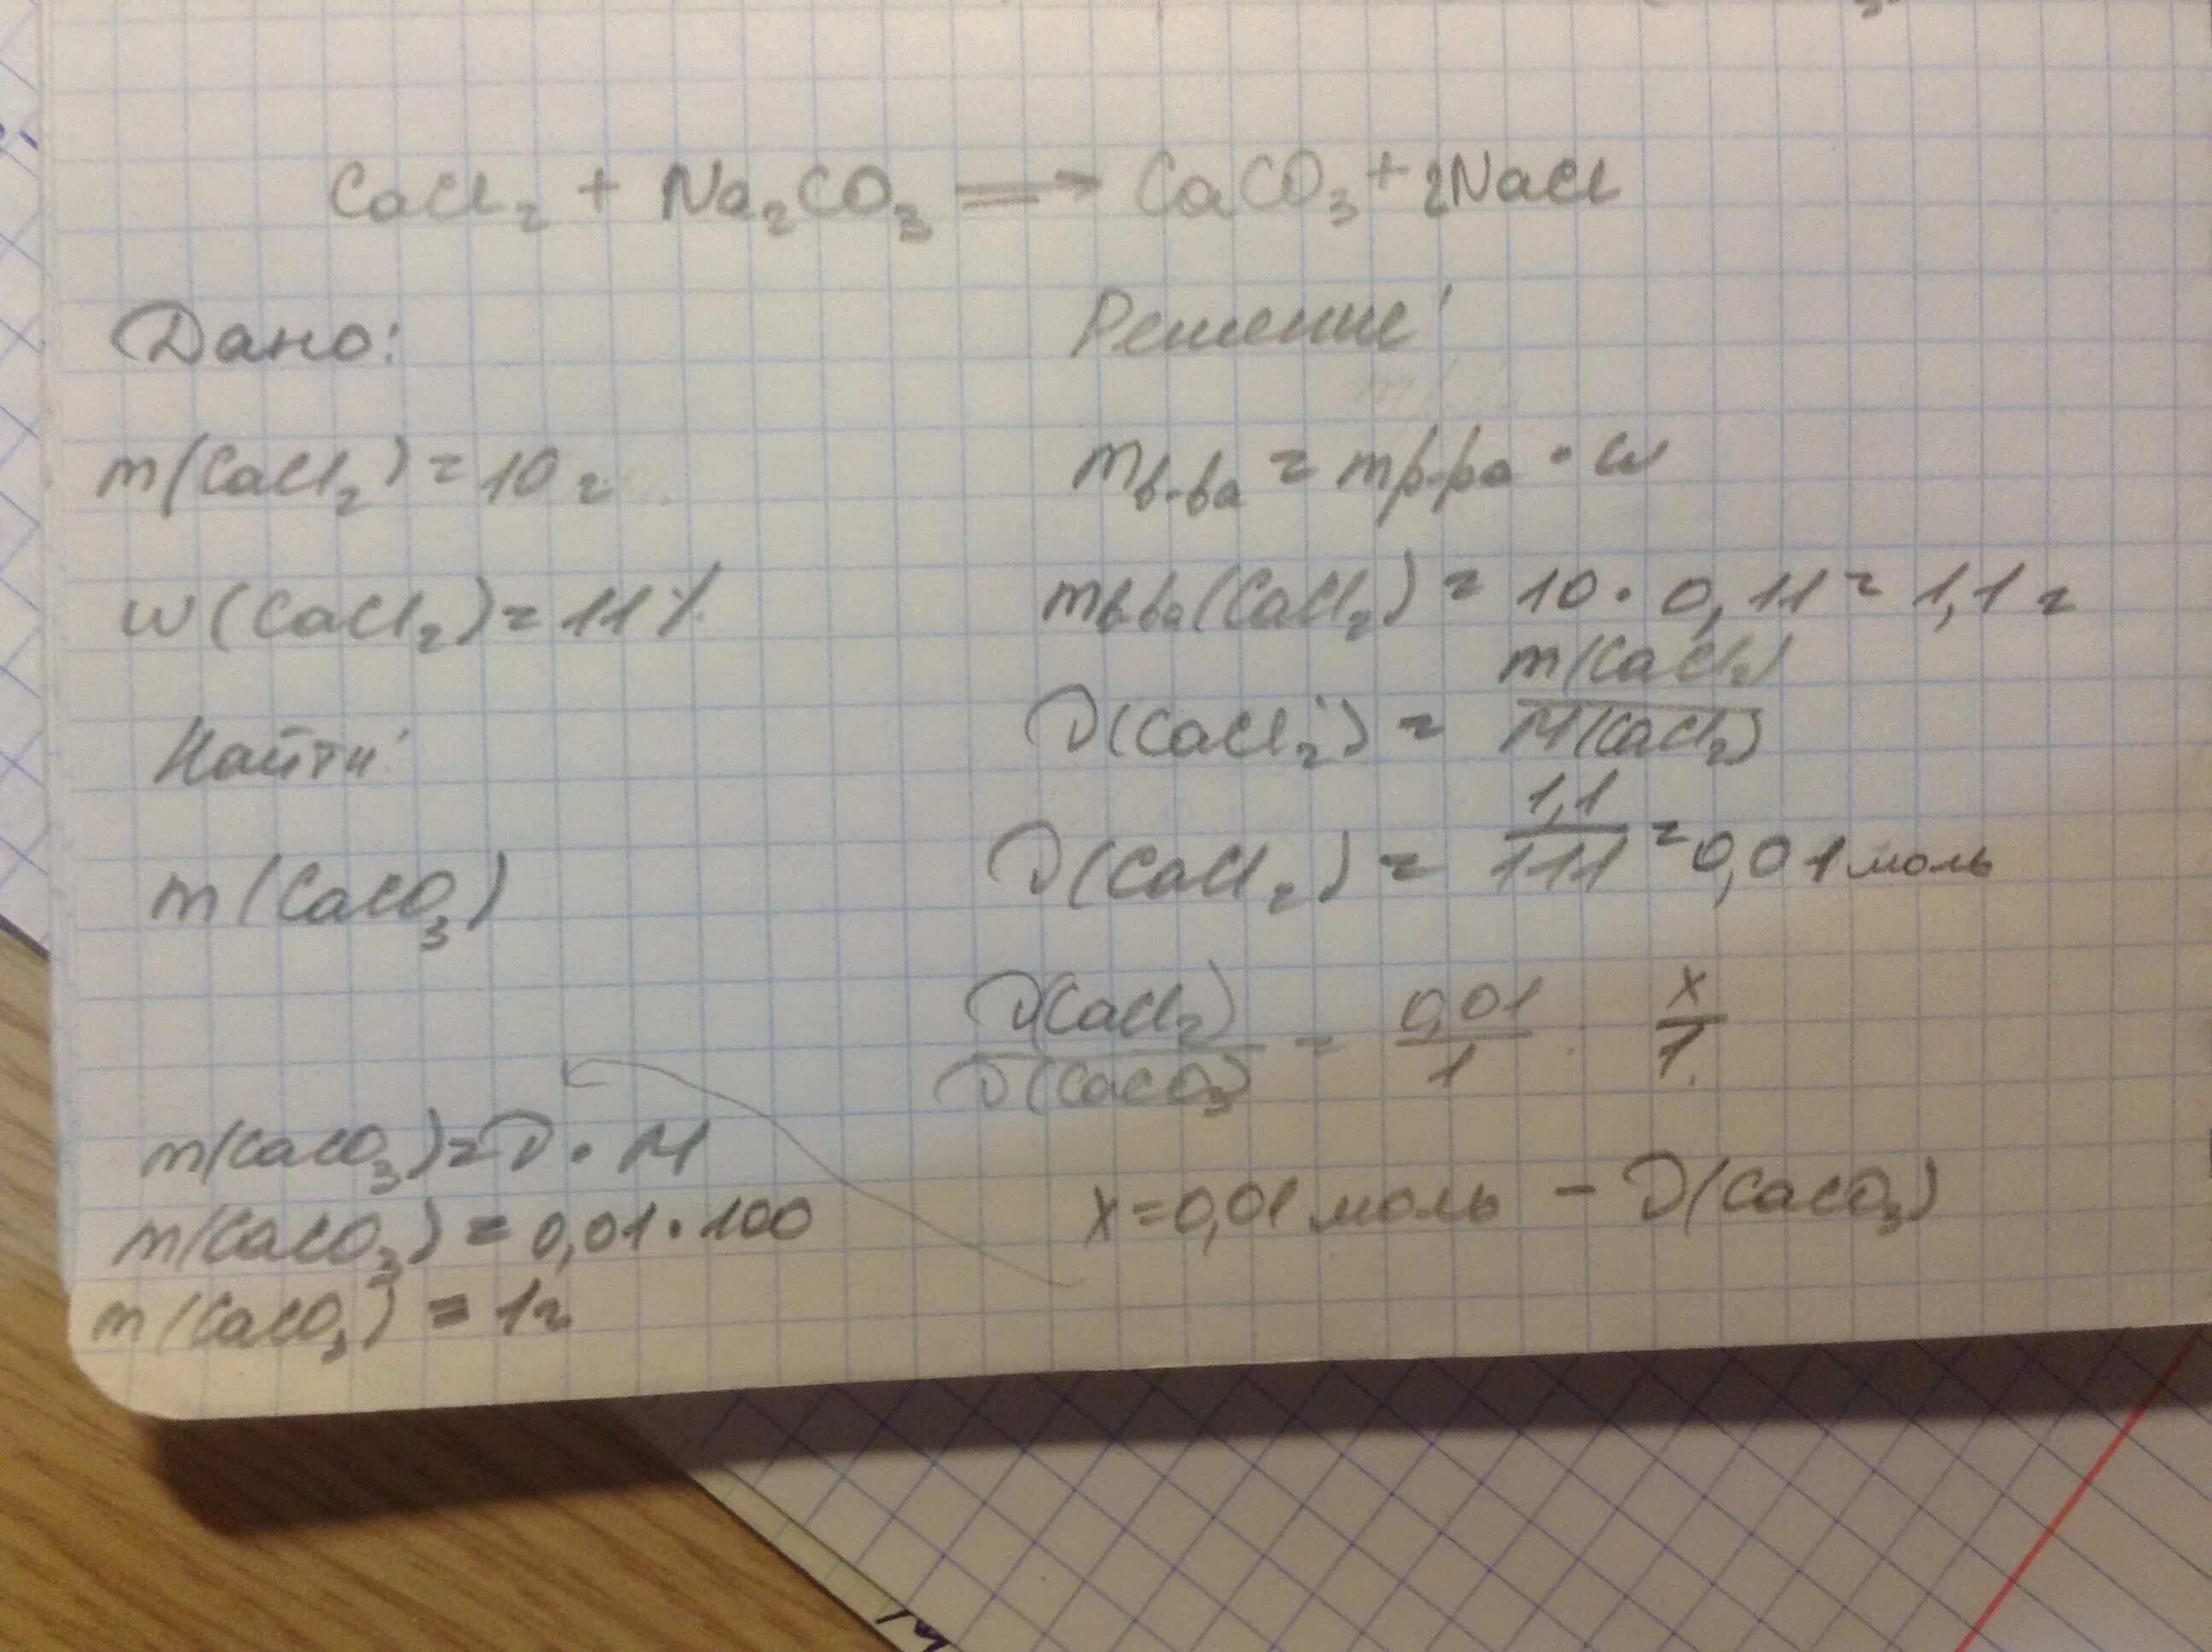 CaCl₂ + Na₂CO₃ ⟹ CaCO₃ + 2NaCl
Дано:
m(CaCl₂) = 10 г
w(CaCl₂) = 11%
Найти:
m(CaCO₃)
Решение:
mв-ва = mр-ра · w
mв-ва(CaCl₂) = 10 · 0,11 = 1,1 г
ν(CaCl₂) = m(CaCl₂) / M(CaCl₂)
ν(CaCl₂) = 1,1 / 111 = 0,01 моль
ν(CaCl₂) / ν(CaCO₃) = 0,01 / 1 x / 1
x = 0,01 моль – ν(CaCO₃)
m(CaCO₃) = ν · M
m(CaCO₃) = 0,01 · 100
m(CaCO₃) = 1 г